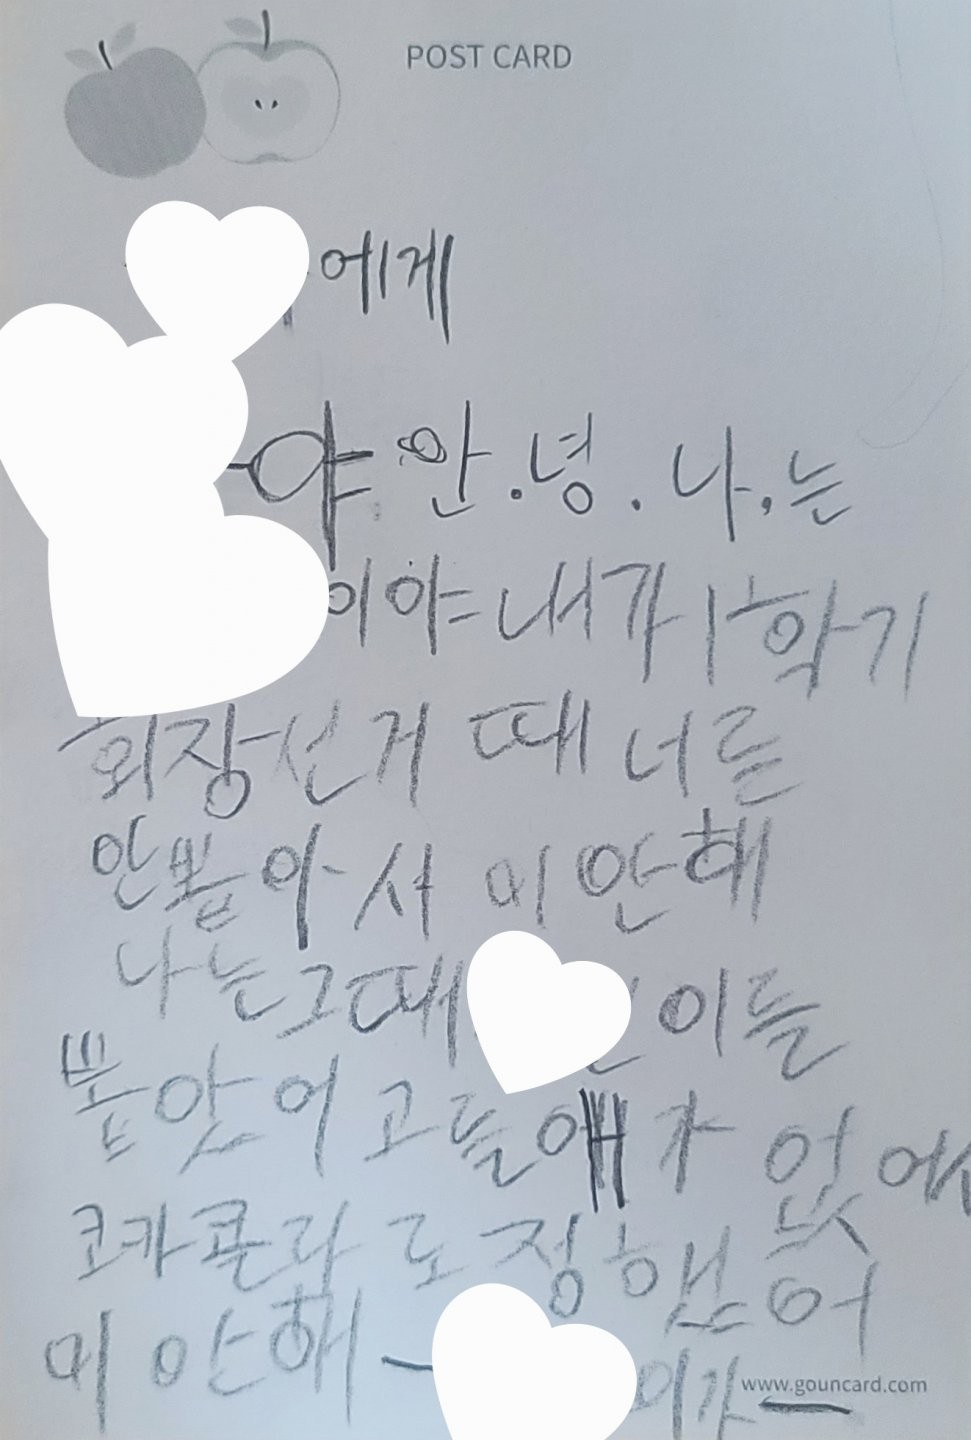 POST CARD
에게
야 안.녕.나.는
이야 내가 1학기
회장선거 때 너를
안뽑아서 미안해
나는그때 이를
뽑앗어 고를얘가 없어
코카콜라 도정했어
미안해 - 이가 -
www.gouncard.com